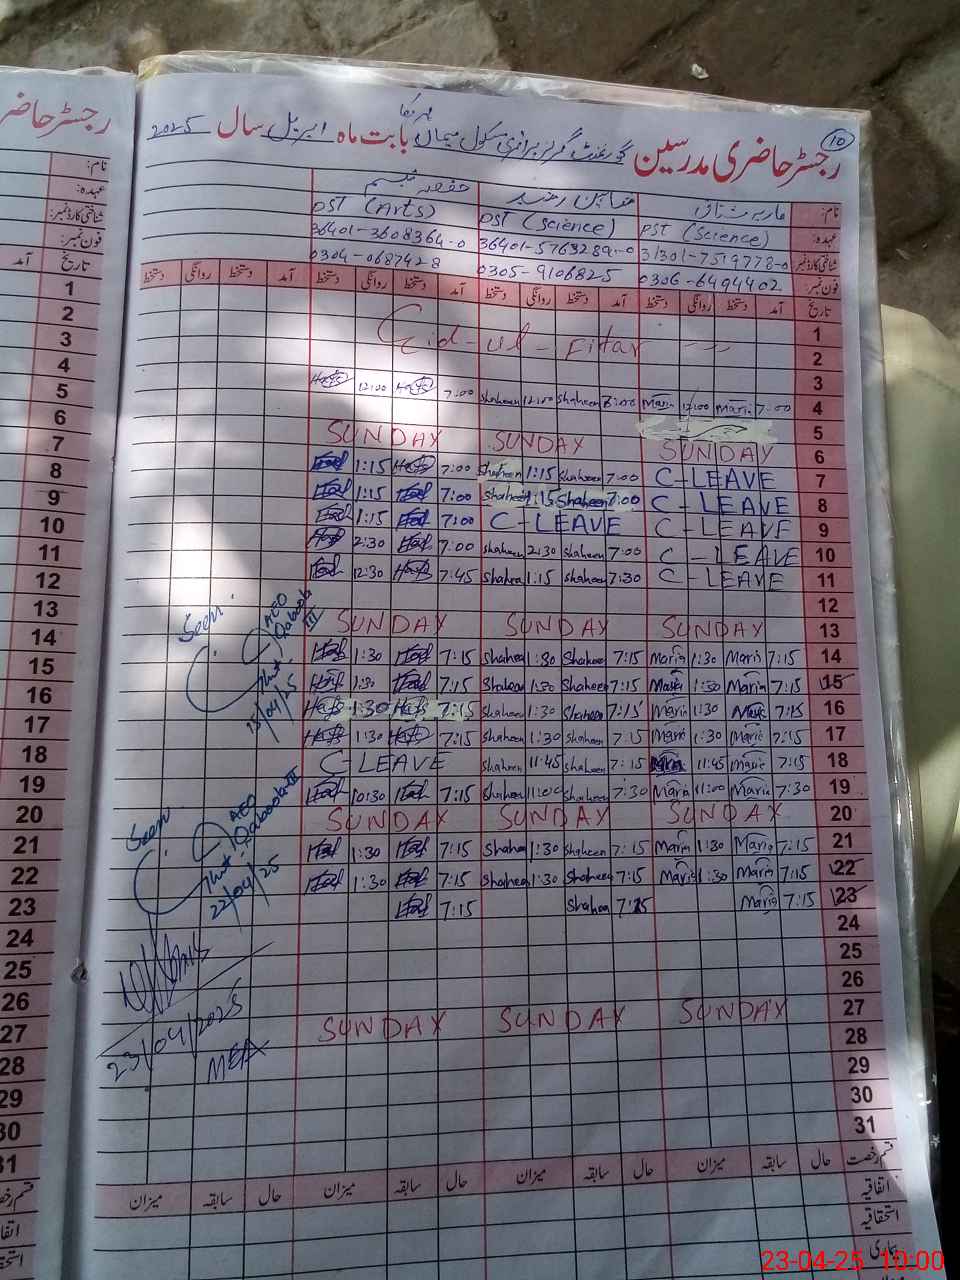 رجسٹر حاضر
10
رجسٹر حاضری مدرسین گورنمنٹ گرلز پرائمری سکول بابت ماہ اپریل سال 2025
نام:
عہدہ: PST (Science) PST (Science) PST (Arts)
شناختی کارڈ نمبر: 31301-7519778-0 36401-5763289-0 36401-3608364-0
فون نمبر: 0306-6494402 0305-9106825 0304-0687428
تاریخ آمد دستخط روانگی دستخط آمد دستخط روانگی دستخط آمد دستخط روانگی دستخط آمد دستخط روانگی دستخط
1 Eid-ul-Fitar
2
3
4 7:00 Maria 12:00 Maria Shaheen 12:00 Shaheen 7:00 Hafs 12:00 Hafs
5
6 SUNDAY SUNDAY SUNDAY
7 C-LEAVE 7:00 Shaheen 1:15 Shaheen 7:00 Hafs 1:15
8 C-LEAVE 7:00 Shaheen 1:15 Shaheen 7:00 1:15
9 C-LEAVE C-LEAVE 7:00 1:15
10 C-LEAVE 7:00 Shaheen 2:30 Shaheen 7:00 2:30
11 C-LEAVE 7:30 Shaheen 1:15 Shaheen 7:45 Hafs 12:30
12
13 SUNDAY SUNDAY SUNDAY
14 7:15 Maria 1:30 Maria 7:15 Shaheen 1:30 Shaheen 7:15 1:30
15 7:15 Maria 1:30 Maria 7:15 Shaheen 1:30 Shaheen 7:15 1:30
16 7:15 Maria 1:30 Maria 7:15 Shaheen 1:30 Shaheen 7:15 Hafs 1:30 Hafs
17 7:15 Maria 1:30 Maria 7:15 Shaheen 1:30 Shaheen 7:15 Hafs 1:30 Hafs
18 7:15 Maria 11:45 Maria 7:15 Shaheen 11:45 Shaheen C-LEAVE
19 7:30 Maria 11:00 Maria 7:30 Shaheen 11:00 Shaheen 7:15 10:30
20 SUNDAY SUNDAY SUNDAY
21 7:15 Maria 1:30 Maria 7:15 Shaheen 1:30 Shaheen 7:15 1:30
22 7:15 Maria 1:30 Maria 7:15 Shaheen 1:30 Shaheen 7:15 1:30
23 7:15 Maria 7:15 Shaheen 7:15
24
25
26
27 SUNDAY SUNDAY SUNDAY
28
29
30
31
Seen
AEO
Qaboola III
15/04/25
Seen
AEO
Qaboola III
22/04/25
23/04/2025
MEA
قسم رخصت حال سابقہ میزان حال سابقہ میزان حال سابقہ میزان حال سابقہ میزان
اتفاقیہ
استحقاقیہ
بیماری
نام:
عہدہ:
شناختی کارڈ نمبر:
فون نمبر:
تاریخ آمد
1
2
3
4
5
6
7
8
9
10
11
12
13
14
15
16
17
18
19
20
21
22
23
24
25
26
27
28
29
30
31
23-04-25 10:00